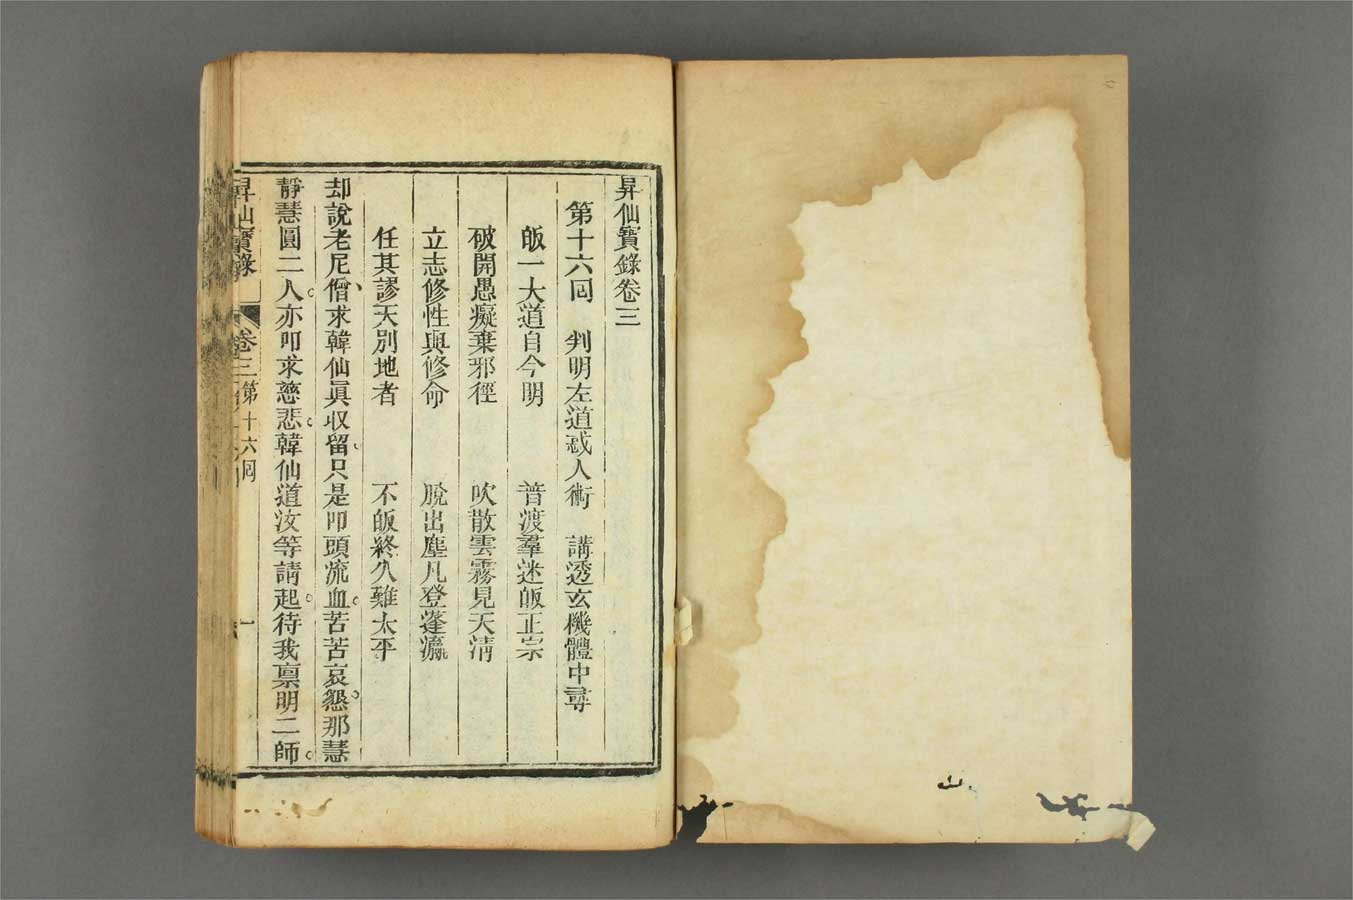 昇仙寶錄卷三
第十六囘 判明左道惑人術 講透玄機體中尋
皈一大道自今明 普渡羣迷皈正宗
破開愚癡棄邪徑 吹散雲霧見天淸
立志修性與修命 脫出塵凡登蓬瀛
任其謬天別地者 不皈終久難太平
却說老尼僧求韓仙眞收留只是叩頭流血苦苦哀懇那慧
靜慧圓二人亦叩求慈悲韓仙道汝等請起待我禀明二師
昇仙寶錄 卷三第十六囘 一